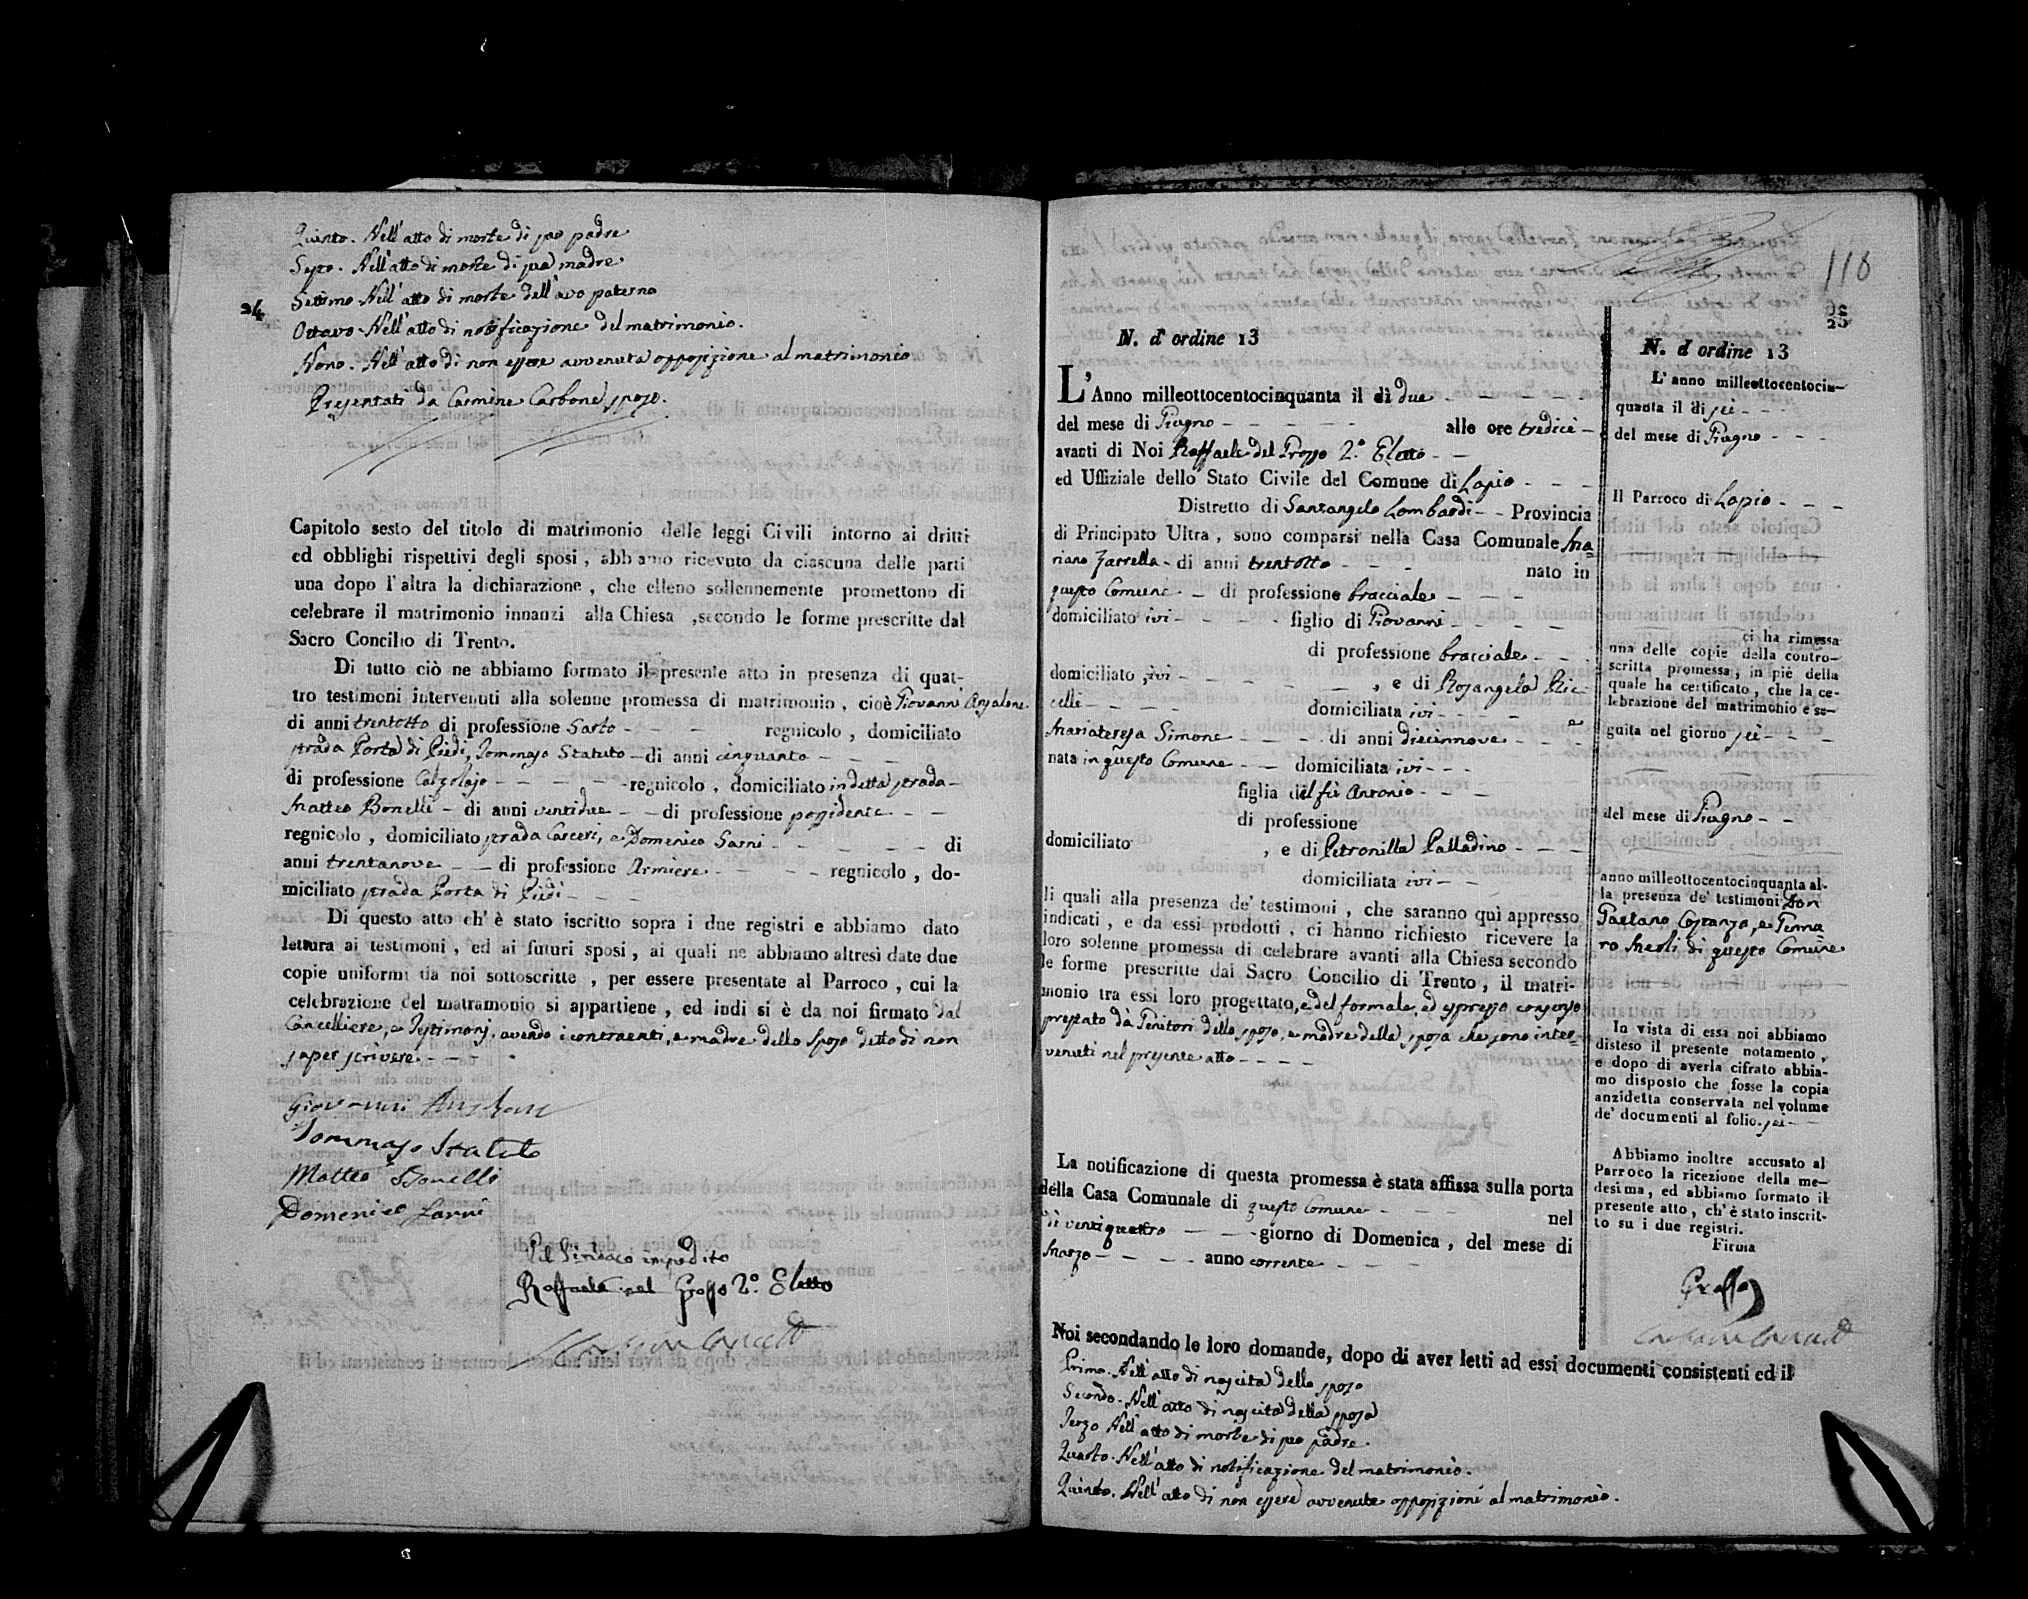 Quinto. Nell'atto di morte di suo padre
Sesto. Nell'atto di morte di sua madre
Settimo. Nell'atto di morte dell'avo paterno
24
Ottavo. Nell'atto di notificazione del matrimonio.
Nono. Nell'atto di non essere avvenuta opposizione al matrimonio
Presentati da Carmine Carbone sposo.
Capitolo sesto del titolo di matrimonio delle leggi Civili intorno ai dritti
ed obblighi rispettivi degli sposi, abbiamo ricevuto da ciascuna delle parti
una dopo l'altra la dichiarazione, che elleno sollennemente promettono di
celebrare il matrimonio innanzi alla Chiesa, secondo le forme prescritte dal
Sacro Concilio di Trento.
Di tutto ciò ne abbiamo formato il presente atto in presenza di quat-
tro testimoni intervenuti alla solenne promessa di matrimonio, cioè Giovanni Anzalone
di anni trentotto di professione Sarto - - - - regnicolo, domiciliato
strada Porta di Piedi, Tommaso Statuto - di anni cinquanta - - -
di professione Calzolajo - - - - - regnicolo, domiciliato in detta strada -
Matteo Bonelli - di anni ventidue - - di professione possidente - -
regnicolo, domiciliato strada Carceri, e Domenico Sarni - - - - - - di
anni trentanove - - di professione Armiere - - - - regnicolo, do-
miciliato strada Porta di Piedi - - -
Di questo atto ch'è stato iscritto sopra i due registri e abbiamo dato
lettura ai testimoni, ed ai futuri sposi, ai quali ne abbiamo altresì date due
copie uniformi da noi sottoscritte, per essere presentate al Parroco, cui la
celebrazione del matramonio si appartiene, ed indi si è da noi firmato dal
Cancelliere, e Testimonj, avendo i contraenti, e madre dello Sposo detto di non
saper scrivere - - -
Giovanni Anzalone
Tommaso Statuto
Matteo Bonelli
Domenico Sarni
Pel Sindaco impedito
Raffaele del Grosso 2.° Eletto
118
25
N. d'ordine 13
L'Anno milleottocentocinquanta il dì due - - - - -
del mese di Giugno - - - - - alle ore tredici -
avanti di Noi Raffaele del Grosso 2.° Eletto - -
ed Uffiziale dello Stato Civile del Comune di Lapio - - -
Distretto di Santangelo Lombardi - - Provincia
di Principato Ultra, sono comparsi nella Casa Comunale Ma=
riano Zarrella - di anni trentotto - - - nato in
questo Comune - di professione bracciale - - -
domiciliato ivi - - - - figlio di Giovanni - - - -
di professione bracciale - -
domiciliato, ivi - - - - - - , e di Rosangela Ric=
celli - - - - domiciliata ivi - - - - e
Mariateresa Simone - - - - di anni diecinnove - - -
nata in questo Comune - - domiciliata ivi - - -
figlia del fù Antonio - - -
di professione
domiciliato , e di Petronilla Palladino - - -
domiciliata ivi - -
li quali alla presenza de' testimoni, che saranno quì appresso
indicati, e da essi prodotti, ci hanno richiesto ricevere la
loro solenne promessa di celebrare avanti alla Chiesa secondo
le forme prescritte dal Sacro Concilio di Trento, il matri-
monio tra essi loro progettato, e del formale, ed espresso consenso
prestato dà Genitori dello sposo, e madre della sposa che sono inter=
venuti nel presente atto - - - -
La notificazione di questa promessa è stata affissa sulla porta
della Casa Comunale di questo Comune - - - nel
dì ventiquattro - - - giorno di Domenica, del mese di
Marzo - - - - anno corrente - - - -
Noi secondando le loro domande, dopo di aver letti ad essi documenti consistenti ed il
Primo. Nell'atto di nascita dello sposo
Secondo. Nell'atto di nascita della sposa
Terzo Nell'atto di morte di suo padre.
Quarto. Nell'atto di notificazione del matrimonio.
Quinto. Nell'atto di non essere avvenute opposizioni al matrimonio.
N. d'ordine 13
L'anno milleottocentocin-
quanta il dì sei - - -
del mese di Giugno - - -
Il Parroco di Lapio - - -
ci ha rimessa
una delle copie della contro-
scritta promessa; in piè della
quale ha certificato, che la ce-
lebrazione del matrimonio è se-
guita nel giorno sei - - -
del mese di Giugno - -
anno milleottocentocinquanta al-
la presenza de' testimoni Don
Gaetano Costanza, e Genna
ro Meoli di questo Comune
In vista di essa noi abbiamo
disteso il presente notamento,
e dopo di averla cifrato abbia-
mo disposto che fosse la copia
anzidetta conservata nel volume
de' documenti al folio. sei - -
Abbiamo inoltre accusato al
Parroco la ricezione della me-
desima, ed abbiamo formato il
presente atto, ch'è stato inscrit-
to su i due registri.
Firma
Grosso